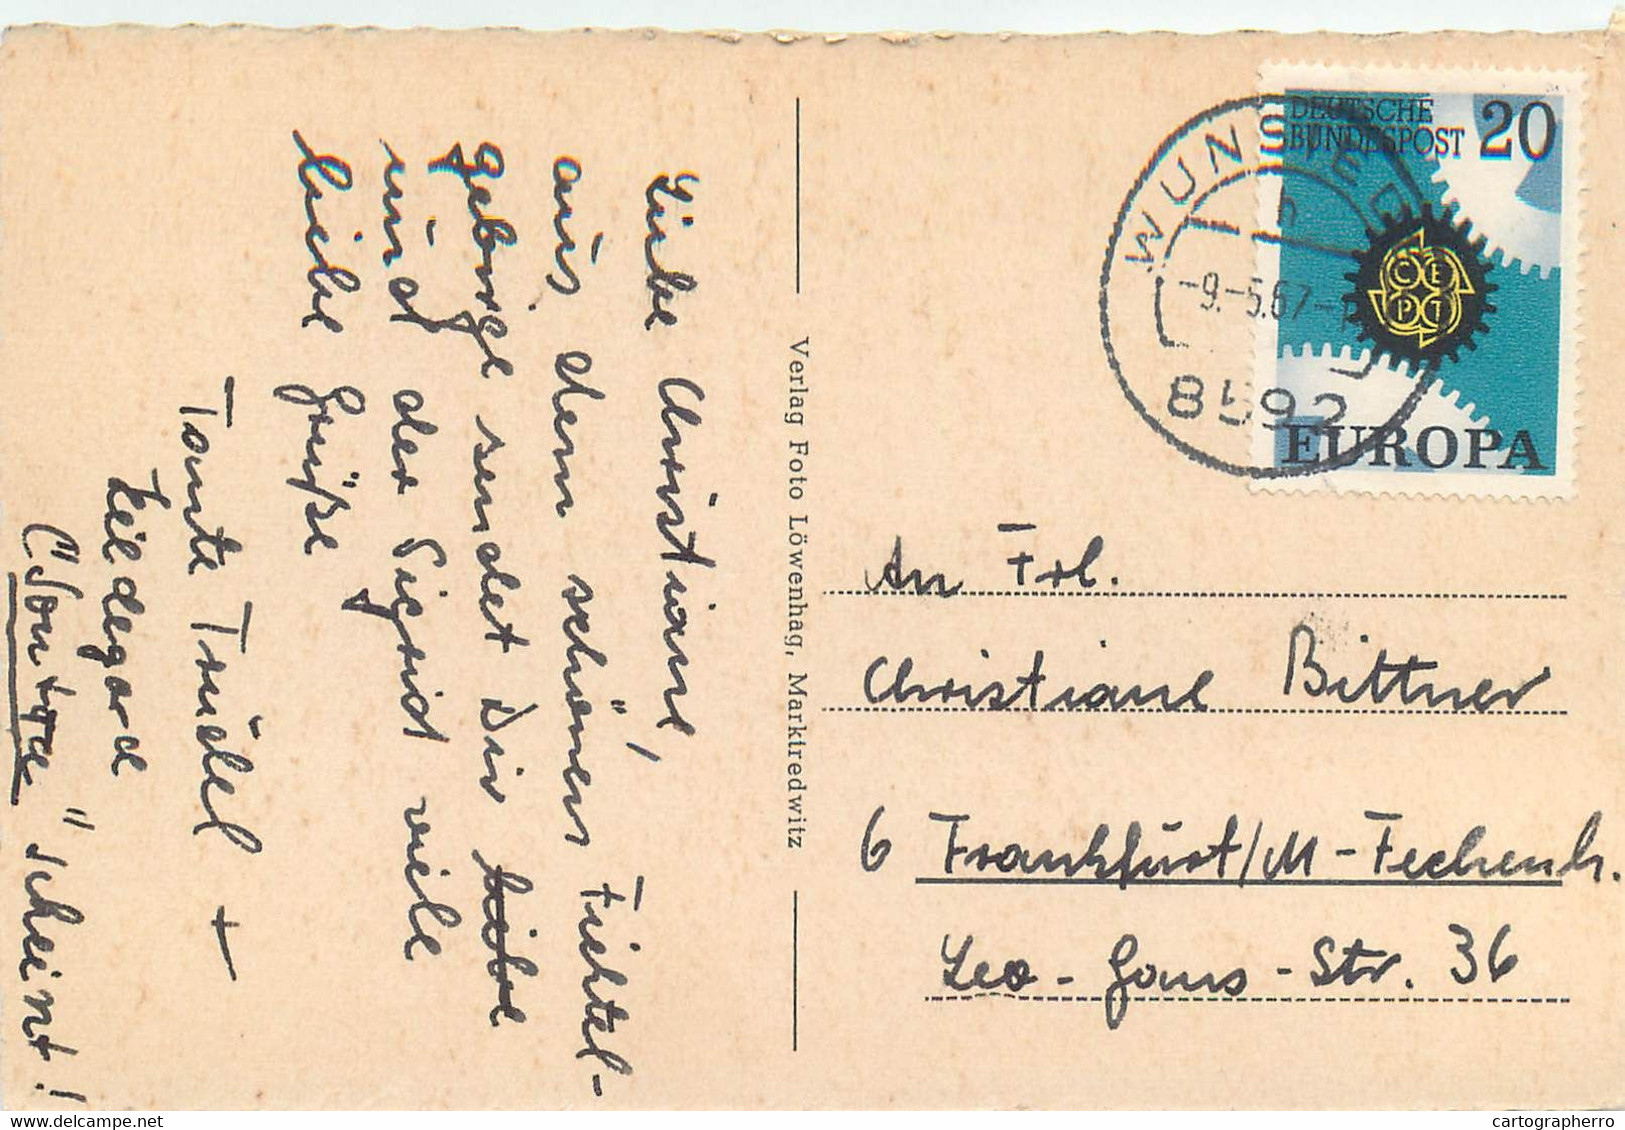 Liebe Christiane,
aus dem schönen Fichtel-
gebirge sendet Dir
und der Sigrid viele
liebe Grüße
Tante Trudel +
Hildegard
("Sonntag" scheint!
Verlag Foto Löwenhag, Marktredwitz
DEUTSCHE
BUNDESPOST 20
CEPT
EUROPA
WUNSIEDEL
-9.-5.67-
8592
An Frl.
Christiane Bittner
6 Frankfurt/M-Fechenh.
Leo-Gans-Str. 36
https://www.delcampe.net
cartographerro